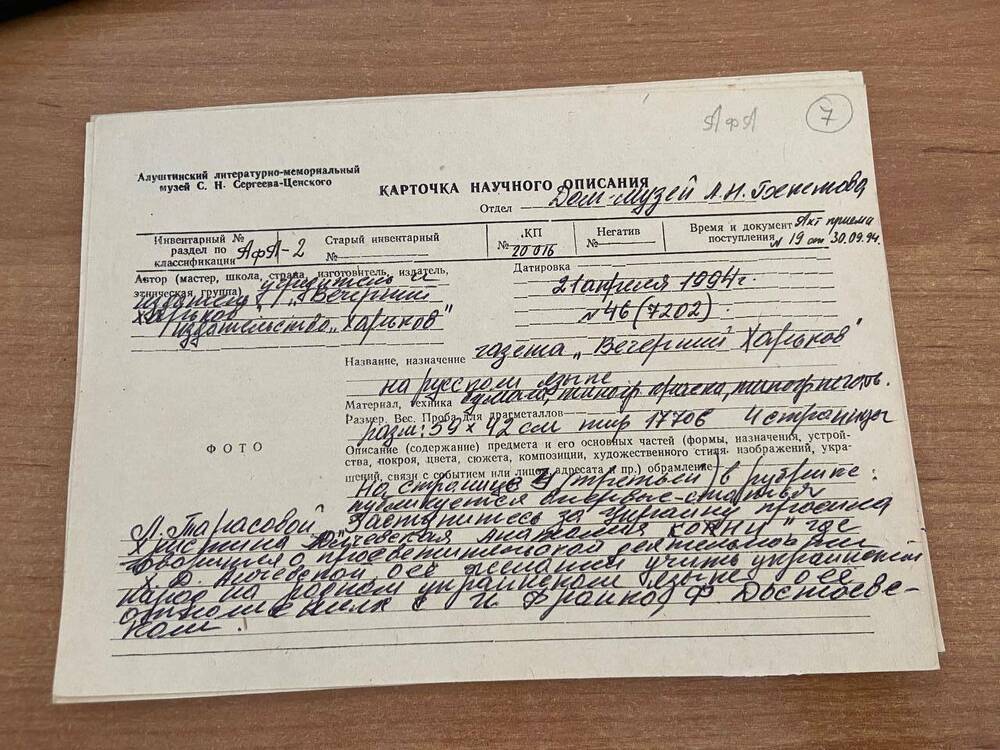 АфА
7
Алуштинский литературно-мемориальный
музей С. Н. Сергеева-Ценского
КАРТОЧКА НАУЧНОГО ОПИСАНИЯ
Отдел Дом-музей А.Н. Бекетова
Инвентарный №
раздел по
классификации АфА-2
Старый инвентарный
№
КП
№ 20 016
Негатив
№
Время и документ Акт приема
поступления № 19 от 30.09.94.
Автор (мастер, школа, страна, изготовитель, издатель,
этническая группа) учредитель и
издатель „Вечерний
Харьков"
Издательство „Харьков"
Датировка
21 апреля 1994 г.
№ 46 (7202)
Название, назначение газета „Вечерний Харьков"
на русском языке
Материал, техника бумага, типогр. краска, типогр. изготов.
Размер. Вес. Проба для драгметаллов
разм: 59 × 42 см тир 17706 4 страницы
ФОТО
Описание (содержание) предмета и его основных частей (формы, назначения, устрой-
ства, покроя, цвета, сюжета, композиции, художественного стиля, изображений, укра-
шений, связи с событием или лицом, адресата и пр.) обрамление
На странице 3 (третьей) в рубрике:
публикуется впервые - статья
Л. Тарасовой „Заступитесь за Украину просила
Христина Алчевская
говорится о просветительской деятельности
Х. Д. Алчевской, её желании учить украинский
народ на родном украинском языке, о её
с И. Франко, Ф. Достоевс-
ким.